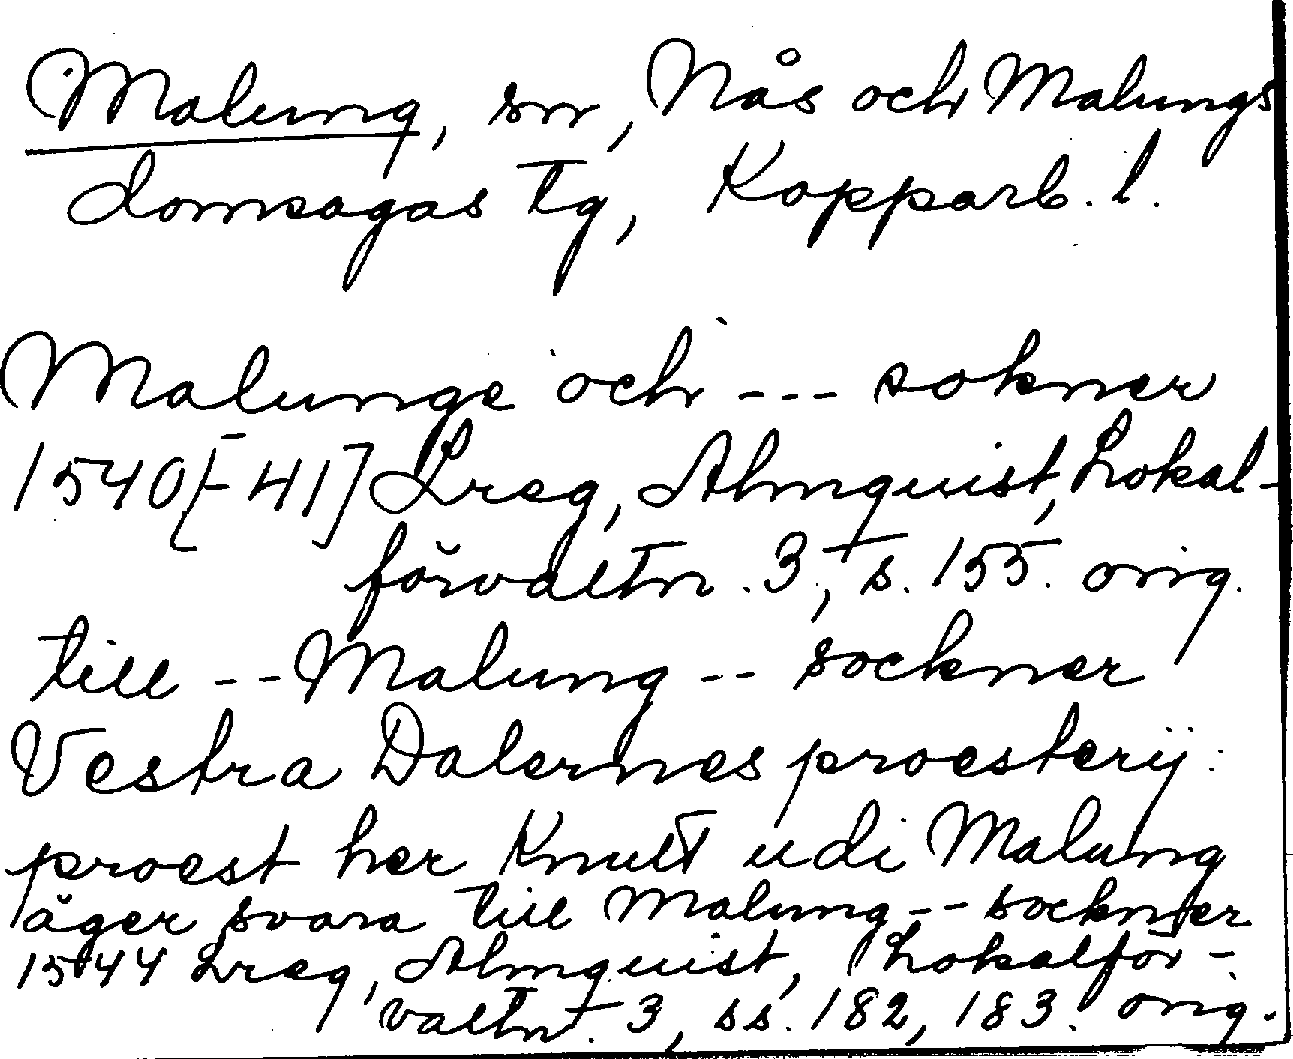 Malung, sn, Nås och Malungs
domsagas tg, Kopparb. l.
Malunge och --- sokner
1540[-41] Lreg, Almquist, Lokal-
förvaltn. 3, s. 155. orig.
till -- Malung -- sockner
Vestra Dalernes proesterij:
proest her Knutt udi Malung
äger svara till Malung -- sockner
1544 Lreg, Almquist, Lokalför-
valtn. 3, ss. 182, 183. orig.